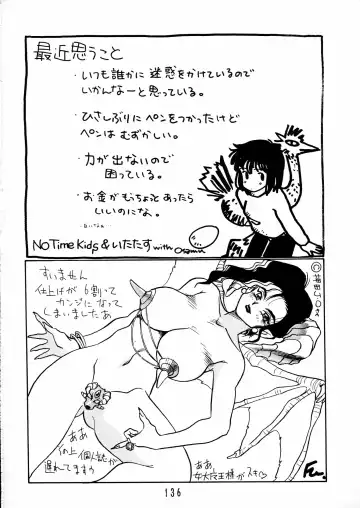 最近思うこと
・いつも誰かに迷惑をかけているので
いかんなーと思っている。
・ひさしぶりにペンをつかったけど
ペンはむずかしい。
・力が出ないので
困っている。
・お金がもっちょっとあったら
いいのにな。
NO Time Kids & いたたす with Osamu
すいません
仕上げが6割いて
カンジになって
しまいましたあ
ああ
個人誌が
遅れてますう
ああ
女大医王様がスキ
136